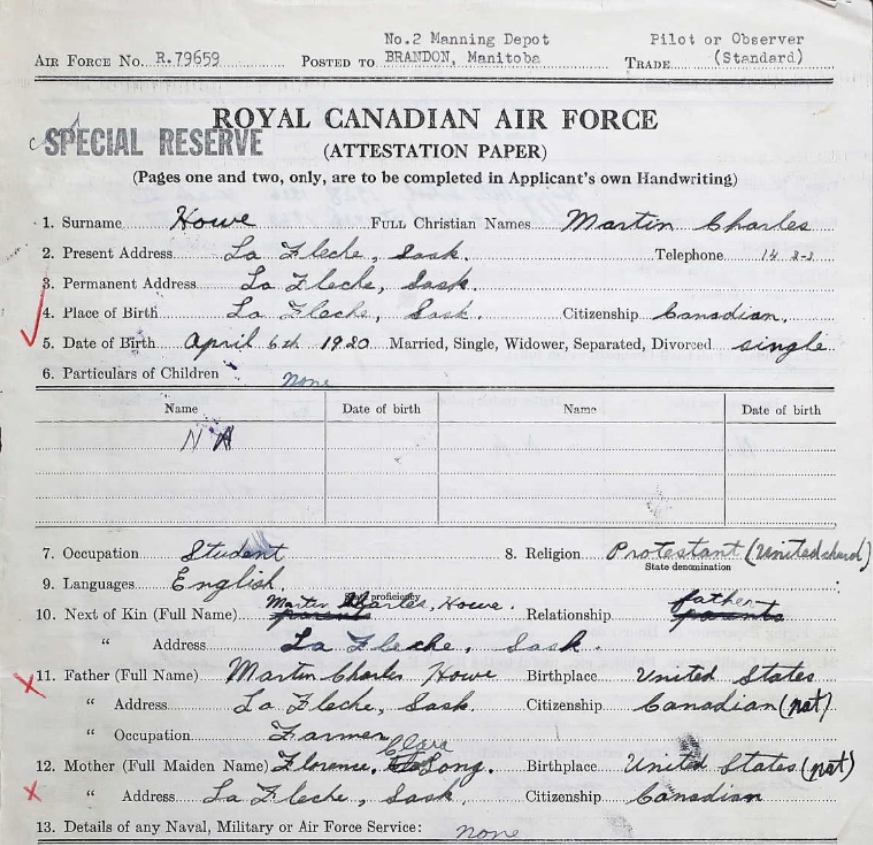 No.2 Manning Depot Pilot or Observer
AIR FORCE NO. R.79659 POSTED TO BRANDON, Manitoba TRADE (Standard)
ROYAL CANADIAN AIR FORCE
SPECIAL RESERVE
(ATTESTATION PAPER)
(Pages one and two, only, are to be completed in Applicant's own Handwriting)
1. Surname Howe FULL Christian Names Martin Charles
2. Present Address La Fleche, Sask. Telephone 14
3. Permanent Address La Fleche, Sask.
4. Place of Birth La Fleche, Sask. Citizenship Canadian.
5. Date of Birth April 6th 1920 Married, Single, Widower, Separated, Divorced single
6. Particulars of Children none
Name Date of birth Name Date of birth
N A
7. Occupation Student 8. Religion Protestant (United church)
State denomination
9. Languages English.
proficiency
10. Next of Kin (Full Name) Martin Charles, Howe. Relationship father
" Address La Fleche, Sask.
11. Father (Full Name) Martin Charles Howe Birthplace United States
" Address La Fleche, Sask. Citizenship Canadian (nat)
" Occupation Farmer
12. Mother (Full Maiden Name) Florence, Clara Long. Birthplace United States (nat)
" Address La Fleche, Sask. Citizenship Canadian
13. Details of any Naval, Military or Air Force Service: none